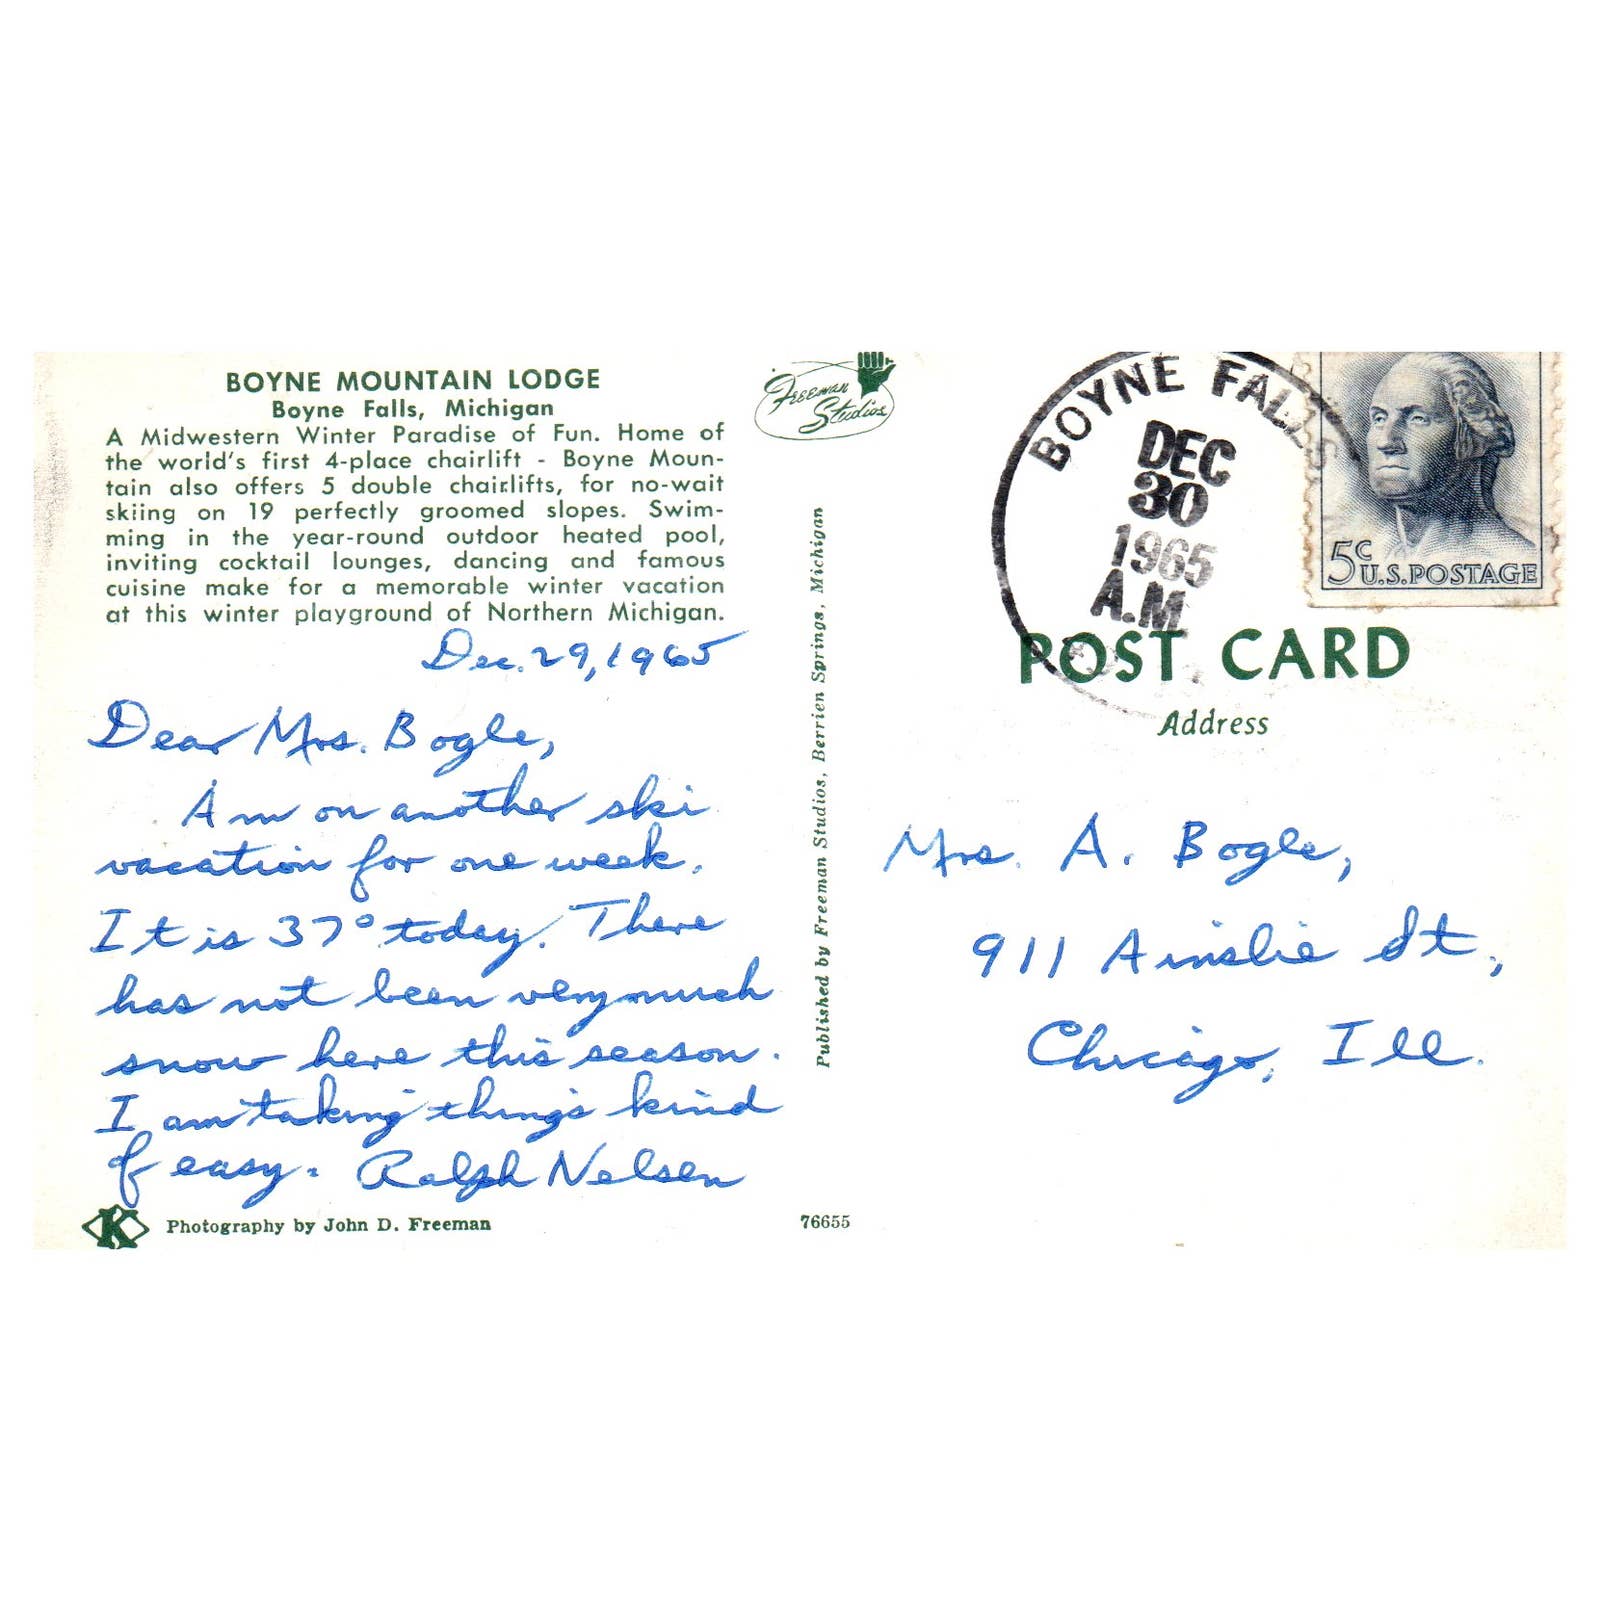 BOYNE MOUNTAIN LODGE
Boyne Falls, Michigan
A Midwestern Winter Paradise of Fun. Home of
the world's first 4-place chairlift - Boyne Moun-
tain also offers 5 double chairlifts, for no-wait
skiing on 19 perfectly groomed slopes. Swim-
ming in the year-round outdoor heated pool,
inviting cocktail lounges, dancing and famous
cuisine make for a memorable winter vacation
at this winter playground of Northern Michigan.
Dec. 29, 1965
Dear Mrs. Bogle,
Am on another ski
vacation for one week.
It is 37° today. There
has not been very much
snow here this season.
I am taking things kind
of easy. Ralph Nelsen
K
Photography by John D. Freeman
76655
Freeman
Studios
Published by Freeman Studios, Berrien Springs, Michigan
BOYNE FALLS
DEC
30
1965
A.M.
5c
U.S. POSTAGE
POST CARD
Address
Mrs. A. Bogle,
911 Ainslie St,
Chicago, Ill.